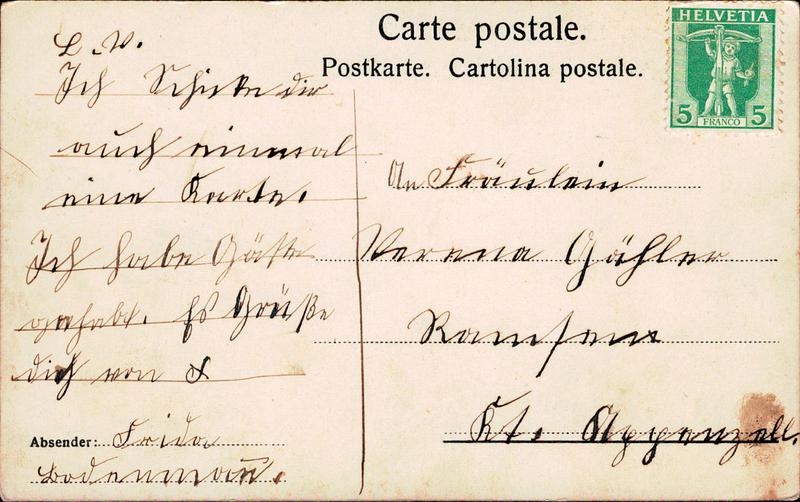 Carte postale.
Postkarte. Cartolina postale.
HELVETIA
5 FRANCO 5
L. V.
Ich Schicke dir
auch einmal
eine Karte.
Ich habe Gäste
gehabt. Es Grüße
dich von
Absender: Frida
Bodenmann.
An Fräulein
Verena Gähler
Ramsen
Kt. Appenzell.